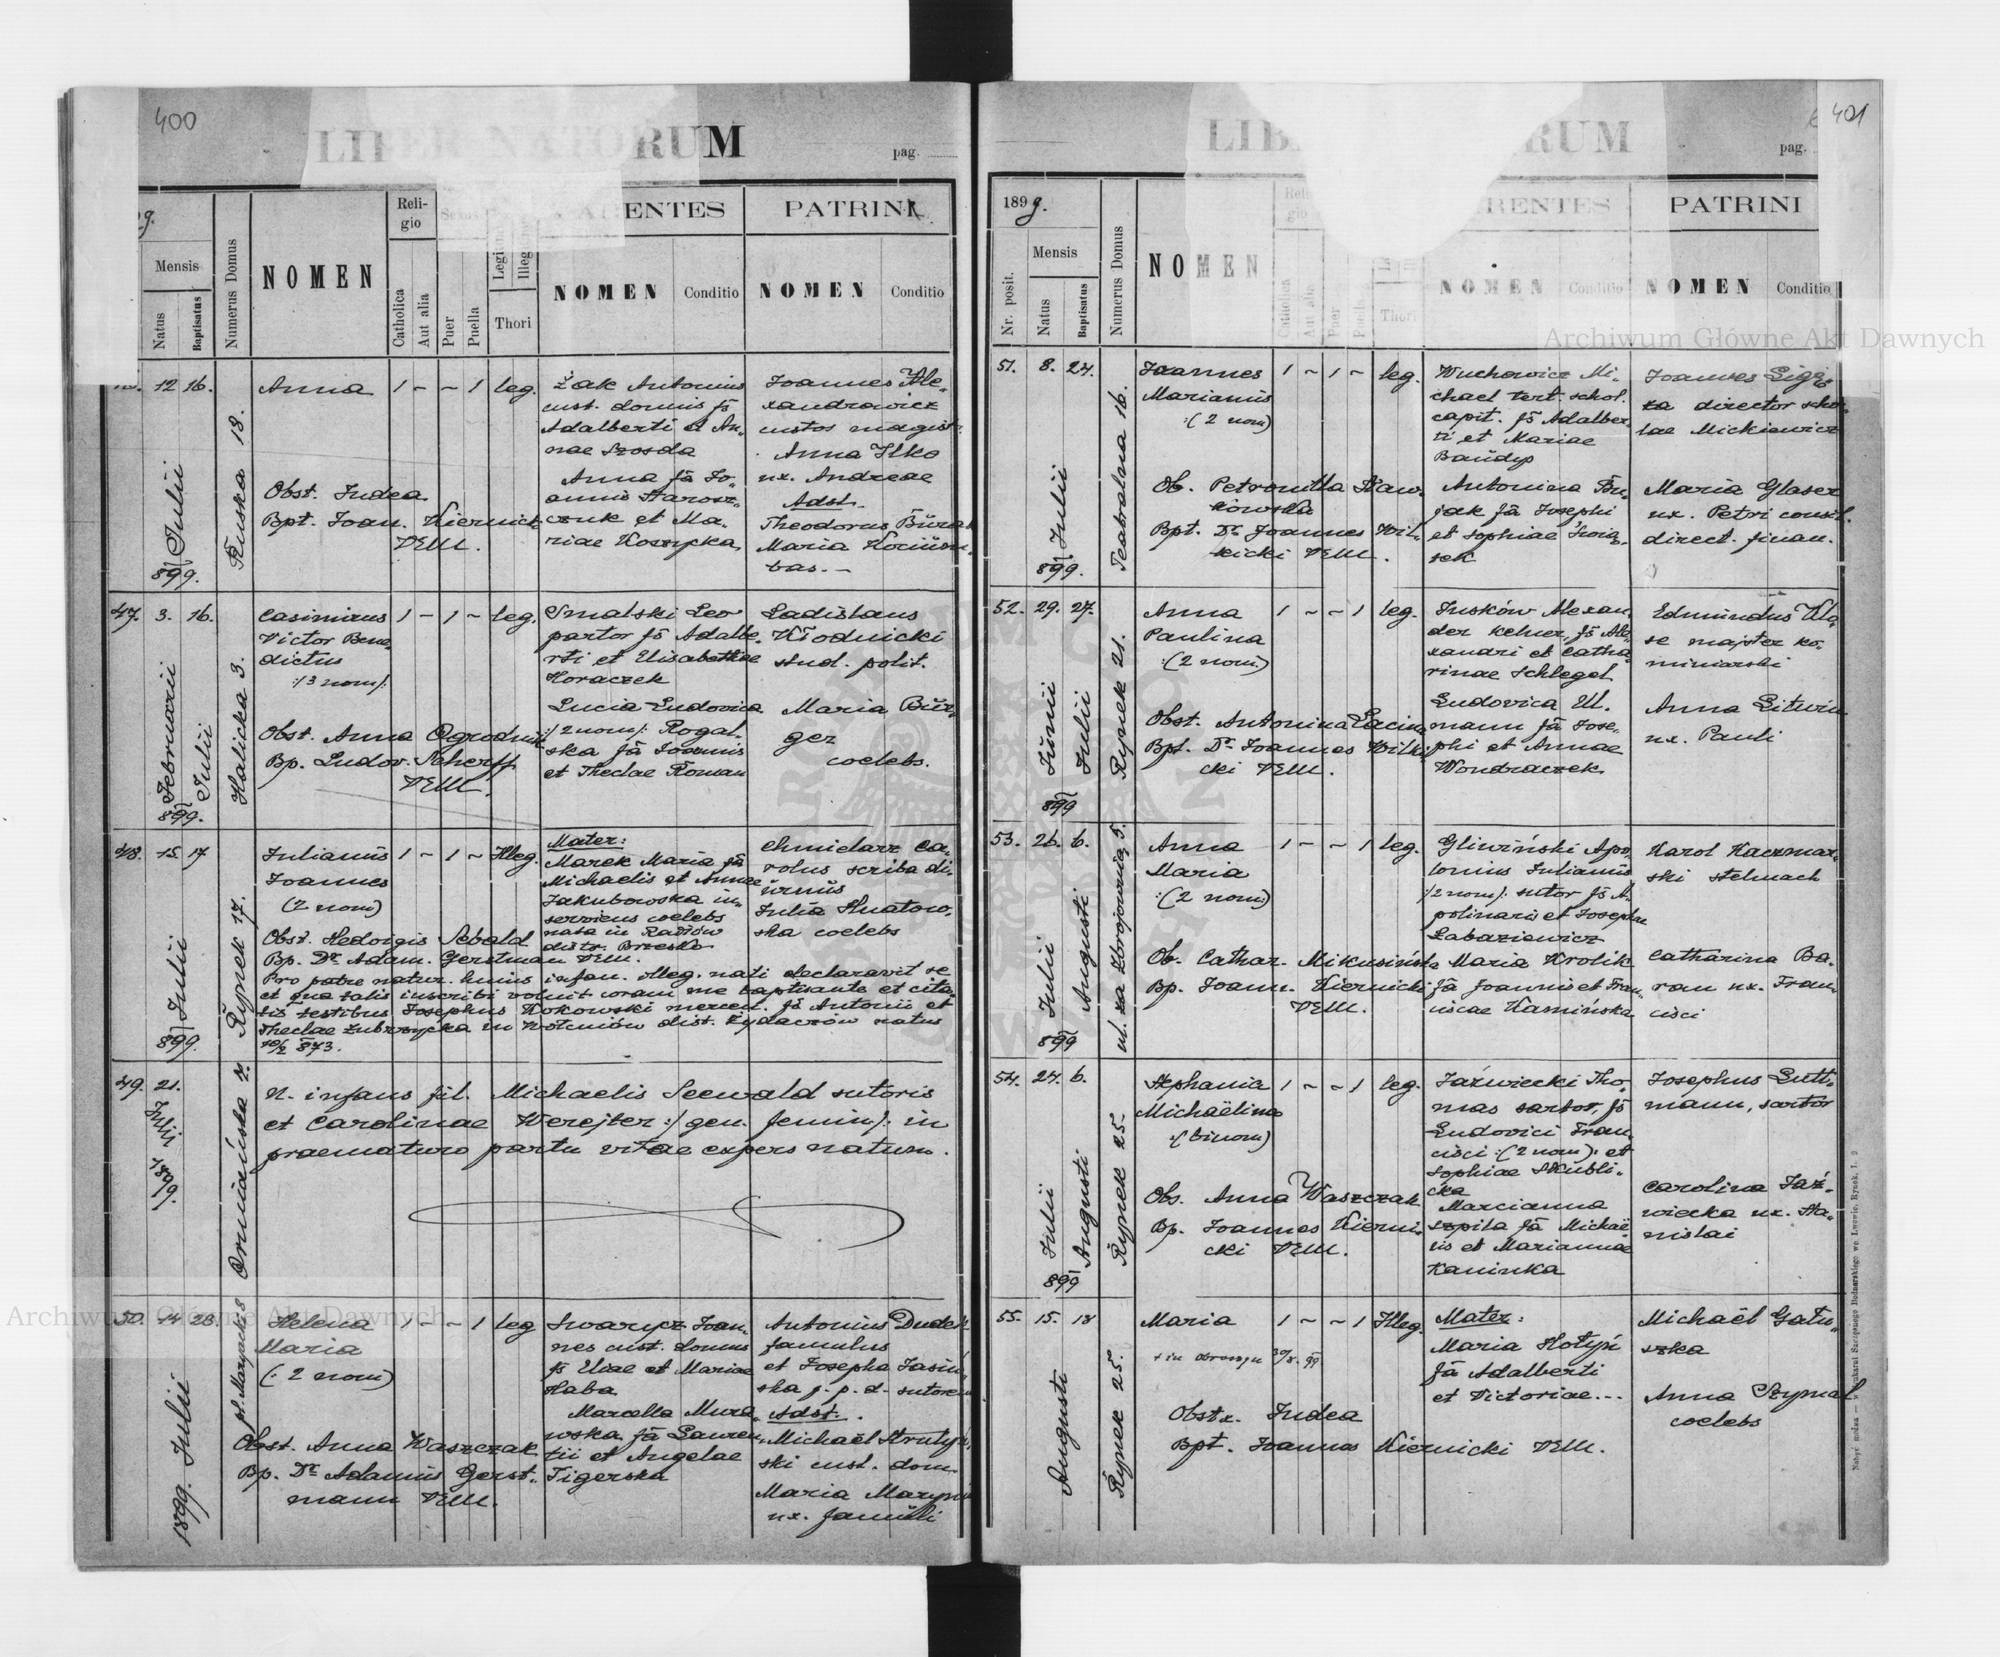 400
LIBER NATORUM
pag.
9.
Mensis
Natus
Baptisatus
Numerus Domus
NOMEN
Religio
Catholica
Aut alia
Puer
Puella
Thori
PARENTES
NOMEN
Conditio
PATRINI
NOMEN
Conditio
12 16.
Julii
899.
Ruska 18.
Anna
1 - - 1 leg.
Obst. Judea
Bpt. Joan. Kiernicki
VEM.
Żak Antonius
cust. domus fs
Adalberti et An-
nae Szosda
Anna fa Jo-
annis Starosz-
czuk et Ma-
riae Koszycka
Joannes Ale-
xandrowicz
custos magist.
Anna Ilko
ux. Andreae
Adst.
Theodorus
Maria
bas. -
47. 3. 16.
Februarii
Julii
899.
Halicka 3.
Casimirus
Victor Bene-
dictus
:/3 nom/:
1 - 1 - leg.
Obst. Anna
Bp. Ludov. Scherff
VEM.
Smalski Leo
partor fs Adalbe-
rti et Elisabethae
Horaczek
Lucia Ludovica
:/2 nom/: Rogal-
ska fa Joannis
et Theclae Roman
Ladislaus
Kłodnicki
stud. polit.
Maria Bür-
ger
coelebs.
48. 15. 17
Julii
899.
Rynek 17.
Julianus
Joannes
(2 nom)
1 - 1 - Illeg.
Obst. Hedvigis Sebald
Bp. Dr. Adam. Gerstman VEM.
Pro patre natur. huius infan. illeg. nati declaravit se
et qua talis inscribi voluit coram me baptisante et cita-
tis testibus Josephus Kokowski mercen. fs Antonii et
Theclae Zubrzycka in Wołcniów dist. Żydaczów natus
10/2 873.
Mater:
Marek Maria fa
Michaelis et Annae
Jakubowska in-
serviens coelebs
nata in
distr. Brzesko
Chmielarz Ca-
rolus scriba di-
urnus
Julia
ska coelebs
49. 21.
Julii
1899.
Ormiańska 7.
N. infans fil. Michaelis Seewald sutoris
et Carolinae Werejter :/gen. femin/: in
praematuro partu vitae expers natum.
50. 14 23.
1899. Julii
pl. Maryacki 8
Helena
Maria
(: 2 nom)
1 - - 1 leg
Obst. Anna Waszczak
Bp. Dr. Adamus Gerst-
mann VEM.
Swarycz Joan-
nes cust. domus
fs Eliae et Mariae
Haba
Marcella Mura-
wska fa Lauren-
tii et Angelae
Tigerska
Antonius Dudek
famulus
et Josepha Jasiń-
ska p. p. d. sutore
Adst:.
Michaël Strutyń-
ski cust. dom.
Maria
ux. famuli
401
LIBER NATORUM
pag.
1899.
Nr. posit.
Mensis
Natus
Baptisatus
Numerus Domus
NOMEN
Religio
Catholica
Aut alia
Puer
Puella
Thori
PARENTES
NOMEN
Conditio
PATRINI
NOMEN
Conditio
51. 8. 24.
Julii
899.
Teatralna 16.
Joannes
Marianus
:(2 nom)
1 - 1 - leg.
Ob. Petronilla Kaw-
kowska
Bpt. Dr. Joannes Wil-
kicki VEM.
Wuchowicz Mi-
chael tert. schol.
capit. fs Adalber-
ti et Mariae
Baüdys
Antonina Bu-
jak fa Josephi
et Sophiae Świą-
sek
Joannes
za director scho-
lae Mickiewicz
Maria Glaser
ux. Petri consil.
direct. finan.
52. 29. 27.
Junii
Julii
899
Rynek 21.
Anna
Paulina
:(2 nom)
1 - - 1 leg.
Obst. Antonina
Bpt. Dr. Joannes
cki VEM.
Juskôw Alexan-
der kelner, fs Ale-
xandri et Catha-
rinae Schlegel
Ludovica Ul-
mann fa Jose-
phi et Annae
Wondraczek
Edmundus
se majster ko-
miniarski
Anna Litwin
ux. Pauli
53. 26. 6.
Julii
Augusti
899
ul. za Zbrojownią 5.
Anna
Maria
:(2 nom)
1 - - 1 leg.
Ob. Cathar. Mikusińska
Bp. Joann. Kiernicki
VEM.
Gliwiński Apo-
lonius Julianus
:/2 nom/: sutor fs A-
polinaris et Josepha
Łabaziewicz
Maria Krolik
fa Joannis et Fran-
ciscae Kamińska
Karol Kaczmar-
ski stelmach
Catharina Ba-
ran ux. Fran-
cisci
54. 24. 6.
Julii
Augusti
899
Rynek 25.
Stephania
Michaëlina
:(binom)
1 - - 1 leg.
Obs. Anna Waszczak
Bp. Joannes Kierni-
cki VEM.
Jaźwiecki Tho-
mas sartor, fs
Ludovici Fran-
cisci :(2 nom): et
Sophiae Skubli-
cka
Marcianna
Szpila fa Michaë-
lis et Mariannae
Kaninka
Josephus Lutt-
mann, sartor
Carolina Jaź-
wiecka ux. Sta-
nislai
55. 15. 18
Augusti
Rynek 25.
Maria
1 - - 1 Illeg.
Obstx. Judea
Bpt. Joannes Kiernicki VEM.
Mater:
Maria Hotyń
fa Adalberti
et Victoriae...
Michaël Gału-
szka
Anna Szymal
coelebs
Archiwum Główne Akt Dawnych
Archiwum Główne Akt Dawnych